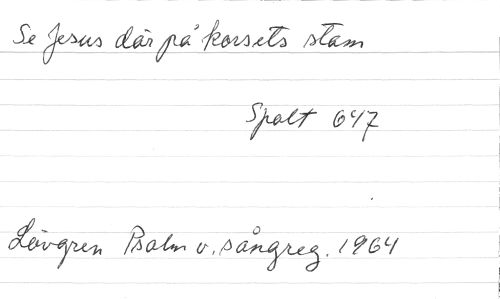 Se Jesus där på korsets stam
Spalt 647
Lövgren Psalm v. sångreg. 1964